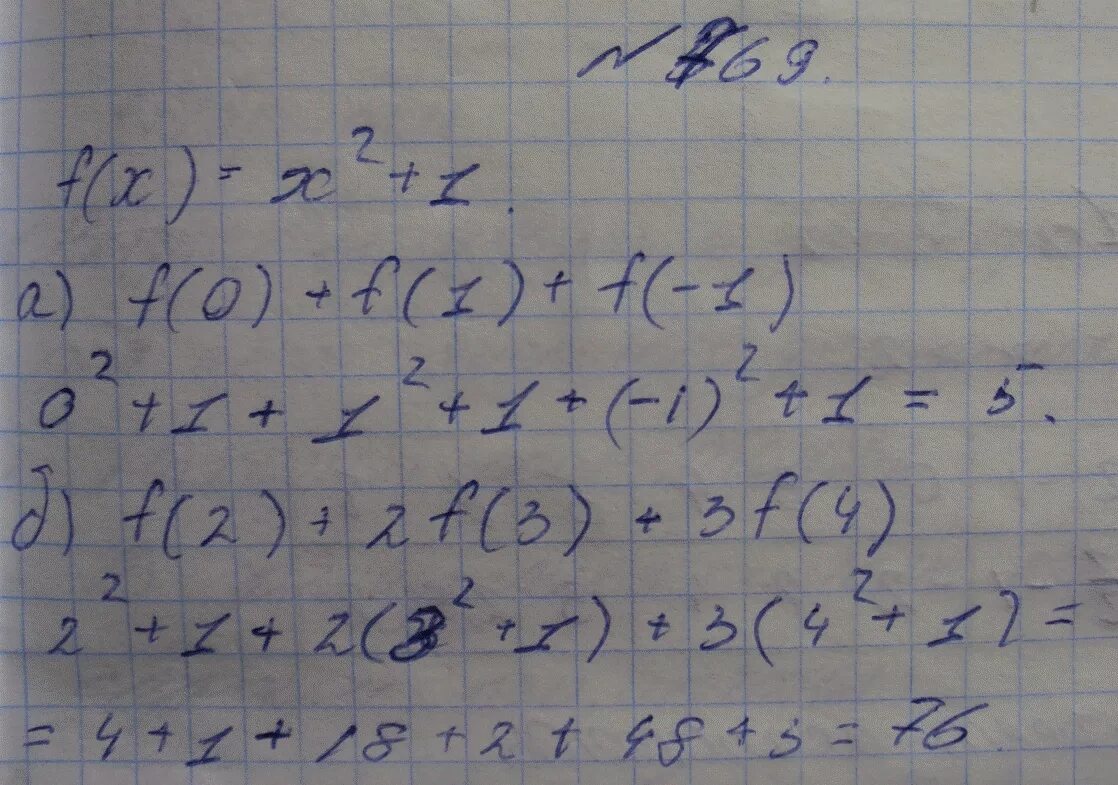 № 769.
f(x) = x² + 1.
а) f(0) + f(1) + f(-1)
0² + 1 + 1² + 1 + (-1)² + 1 = 5.
б) f(2) + 2f(3) + 3f(4)
2² + 1 + 2(3² + 1) + 3(4² + 1) =
= 4 + 1 + 18 + 2 + 48 + 3 = 76.